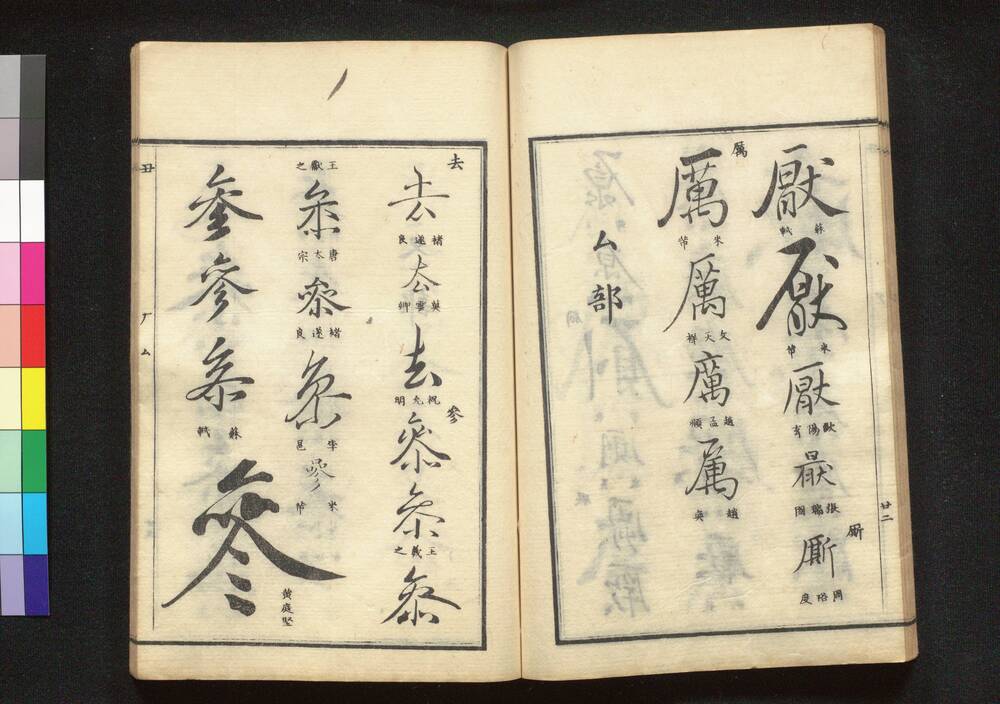 厭
蘇軾
厭
米芾
厭
歐陽玄
厭
張瑞圖
廝
廝
周啓度
廿二
厲
厲
米芾
厲
文天祥
厲
趙孟頫
厲
趙奕
厶部
去
去
褚遂良
去
莫雲卿
去
祝允明
參
參
參
王羲之
參
王獻之
參
唐太宗
參
褚遂良
參
李邕
參
米芾
參
參
參
參
蘇軾
參
黄庭堅
丑
厂
厶